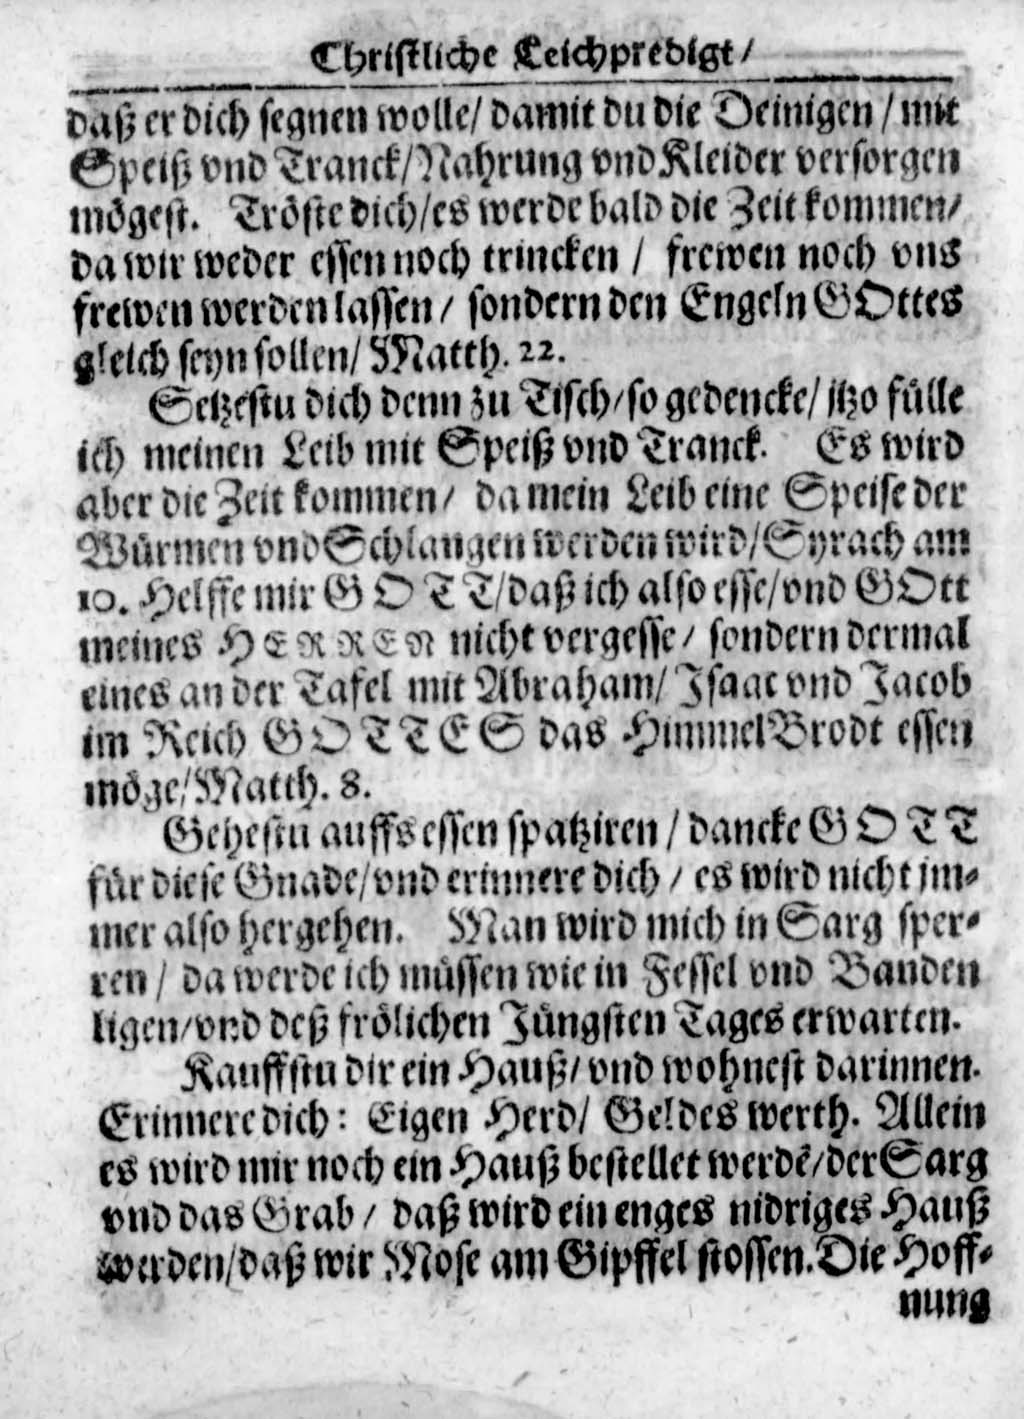 Christliche Leichpredigt /
daß er dich segnen wolle / damit du die Deinigen / mit
Speiß vnd Tranck / Nahrung vnd Kleider versorgen
mögest. Tröste dich / es werde bald die Zeit kommen /
da wir weder essen noch trincken / frewen noch vns
frewen werden lassen / sondern den Engeln GOttes
gleich seyn sollen / Matth. 22.
Setzestu dich denn zu Tisch / so gedencke / jtzo fülle
ich meinen Leib mit Speiß vnd Tranck. Es wird
aber die Zeit kommen / da mein Leib eine Speise der
Würmen vnd Schlangen werden wird / Syrach am
10. Helffe mir GOTT / daß ich also esse / vnd GOtt
meines HERREN nicht vergesse / sondern dermal
eines an der Tafel mit Abraham / Isaac vnd Jacob
im Reich GOTTES das HimmelBrodt essen
möge / Matth. 8.
Gehestu auffs essen spatziren / dancke GOTT
für diese Gnade / vnd erinnere dich / es wird nicht jm-
mer also hergehen. Man wird mich in Sarg sper-
ren / da werde ich müssen wie in Fessel vnd Banden
ligen / vnd deß frölichen Jüngsten Tages erwarten.
Kauffstu dir ein Hauß / vnd wohnest darinnen.
Erinnere dich: Eigen Herd / Geldes werth. Allein
es wird mir noch ein Hauß bestellet werdẽ / der Sarg
vnd das Grab / daß wird ein enges nidriges Hauß
werden / daß wir Mose am Gipffel stossen. Die Hoff-
nung